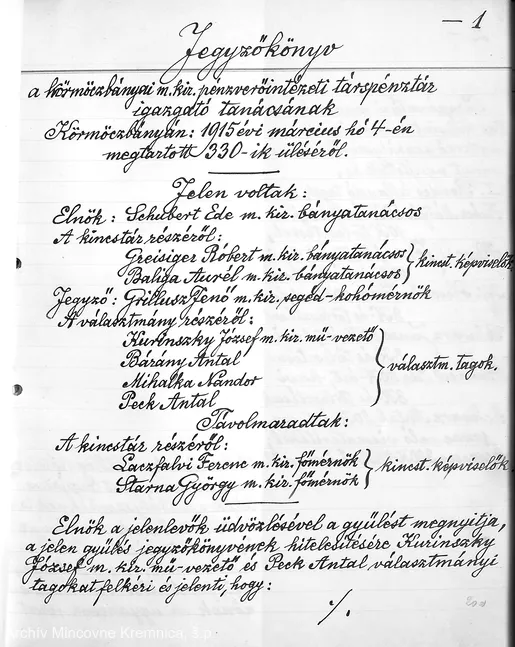 — 1
Jegyzőkönyv
a körmöczbányai m. kir. pénzverőintézeti társpénztár
igazgató tanácsának
Körmöczbányán: 1915 évi március hó 4-én
megtartott 330-ik üléséről.
Jelen voltak:
Elnök: Schubert Ede m. kir. bányatanácsos
A kincstár részéről:
Greisiger Róbert m. kir. bányatanácsos
Baliga Aurél m. kir. bányatanácsos } kincst. képviselők
Jegyző: Grillusz Jenő m. kir. segéd-kohómérnök
A választmány részéről:
Kurinszky József m. kir. mű-vezető
Bárány Antal
Mihalka Nándor
Peck Antal } választm. tagok.
Távolmaradtak:
A kincstár részéről:
Laczfalvi Ferenc m. kir. főmérnök
Starna György m. kir. főmérnök } kincst. képviselők
Elnök a jelenlevők üdvözlésével a gyűlést megnyitja,
a jelen gyűlés jegyzőkönyvének hitelesítésére Kurinszky
József m. kir. mű-vezető és Peck Antal választmányi
tagokat felkéri és jelenti, hogy:
·/.
Archív Mincovne Kremnica, š.p.